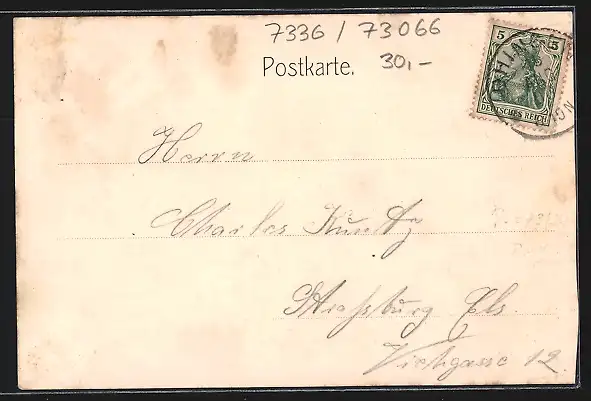 7336 / 73066
Postkarte. 30,-
5 5
DEUTSCHES REICH
Herrn
Charles Kuntz
Straßburg Els.
12